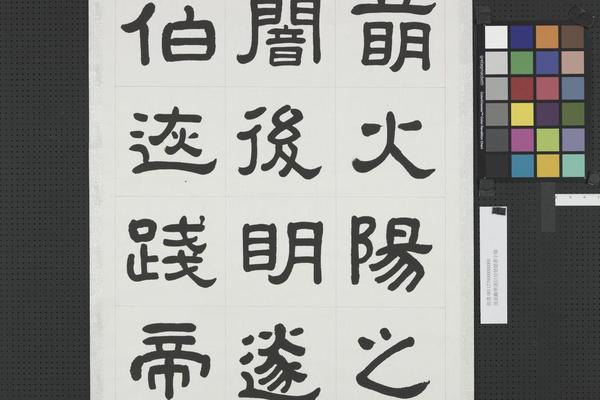 火陽之
闇後明遂
伯迹踐帝